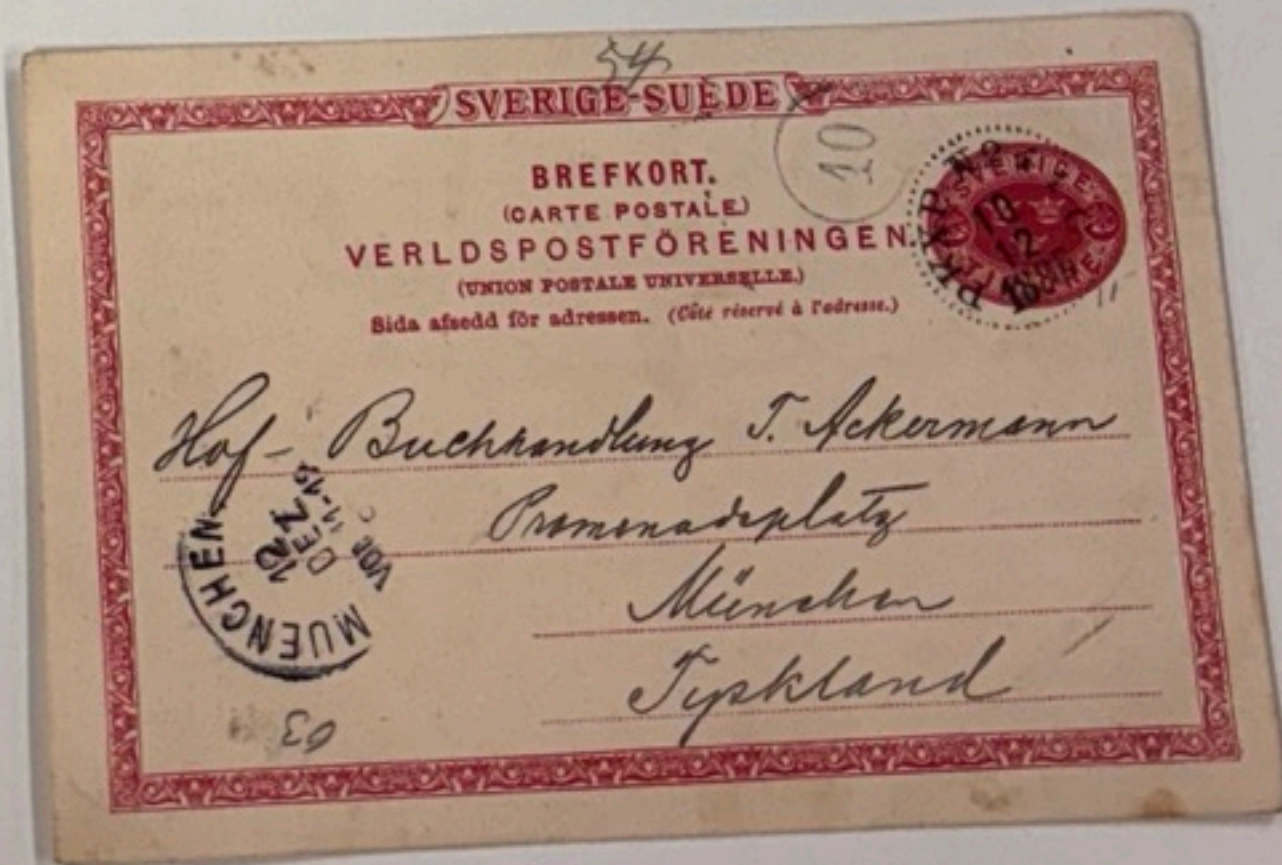 54
SVERIGE-SUÈDE
10
BREFKORT.
(CARTE POSTALE.)
VERLDSPOSTFÖRENINGEN
(UNION POSTALE UNIVERSELLE.)
Sida afsedd för adressen. (Côté réservé à l'adresse.)
SVERIGE
PKXP No
10
12
Hof- Buchhandlung T. Ackermann
Promenadeplatz
München
Tyskland
MUENCHEN
12
DEZ
VOR 11-12
63